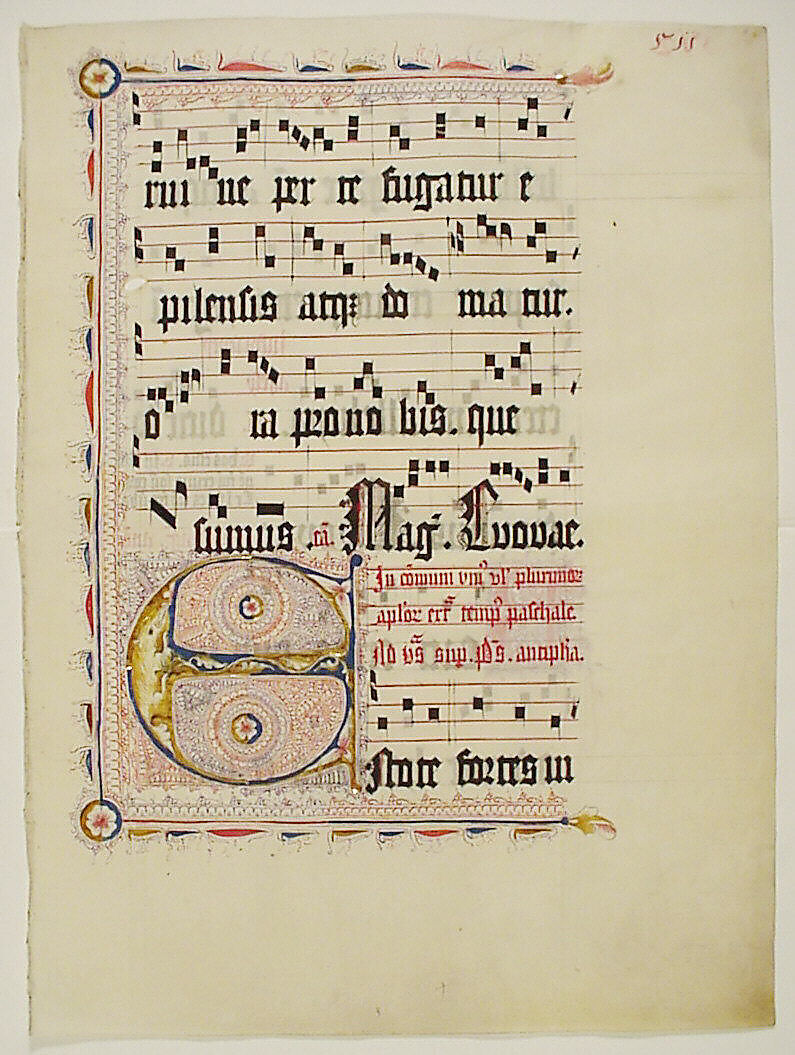 rui ne per te fugatur e
pilensis atq; do ma tur.
o ra pro no bis. que
sumus .cā. Mag̃. Evovae.
In cōmuni vniꝰ vl' plurimoꝝ
aplo'ꝝ temp' paschale.
Ad sup. p̄s. antipha.
Estote fortes in